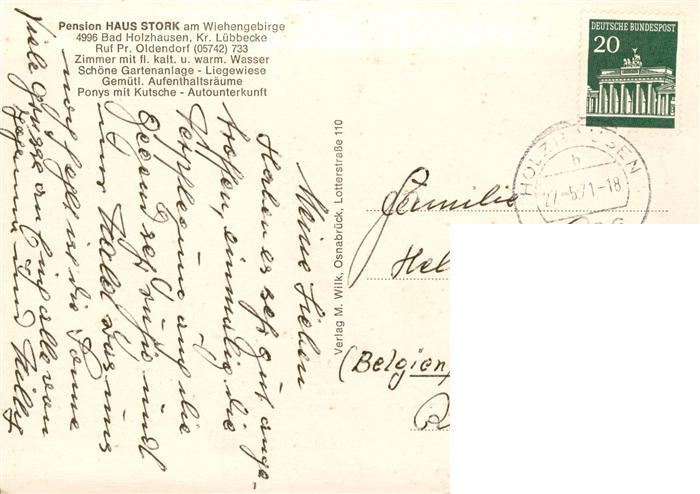 Pension HAUS STORK am Wiehengebirge
4996 Bad Holzhausen, Kr. Lübbecke
Ruf Pr. Oldendorf (05742) 733
Zimmer mit fl. kalt. u. warm. Wasser
Schöne Gartenanlage - Liegewiese
Gemütl. Aufenthaltsräume
Ponys mit Kutsche - Autounterkunft
Meine Lieben
Haben es sehr gut ange-
troffen, einmalig die
Verpflegung auch die
Gegend sehr ruhig und
nur Wald was uns
noch fehlt ist die Sonne
Viele Grüsse an Euch alle von
und Willy
Verlag M. Wilk, Osnabrück, Lotterstraße 110
DEUTSCHE BUNDESPOST
20
HOLZHAUSEN
b
27.-5.71-18
Familie
Hel
(Belgien)